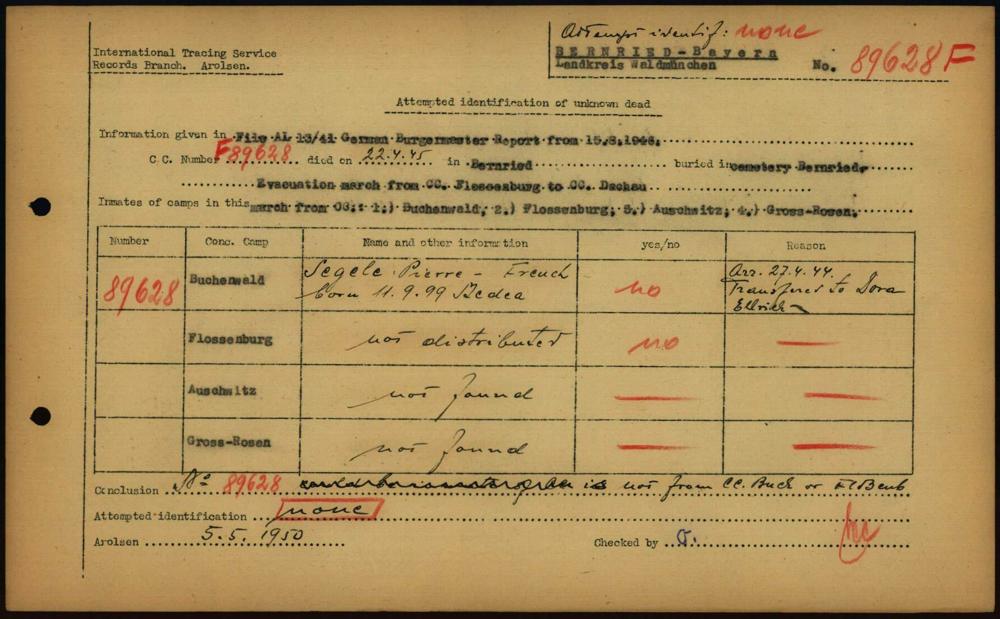 Attempt identif: none
International Tracing Service
Records Branch. Arolsen.
BERNRIED-Bayern
Landkreis Waldmünchen
No. 89628 F
Attempted identification of unknown dead
Information given in File AL 13/41 German Burgermaster Report from 15.8.1946.
C.C. Number F89628 died on 22.4.45 in Bernried buried in cemetery Bernried.
Evacuation march from CC. Flossenburg to CC. Dachau
Inmates of camps in this march from CC.: 1.) Buchenwald; 2.) Flossenburg; 3.) Auschwitz; 4.) Gross-Rosen.
Number Conc. Camp Name and other information yes/no Reason
89628 Buchenwald Segele Pierre - French no Arr. 27.4.44.
born 11.9.99 Transfered to Dora
Ellrich
Flossenburg not distributed no —
Auschwitz not found — —
Gross-Rosen not found — —
Conclusion No 89628 is not from CC. Buch or
Attempted identification none
Arolsen 5.5.1950
Checked by